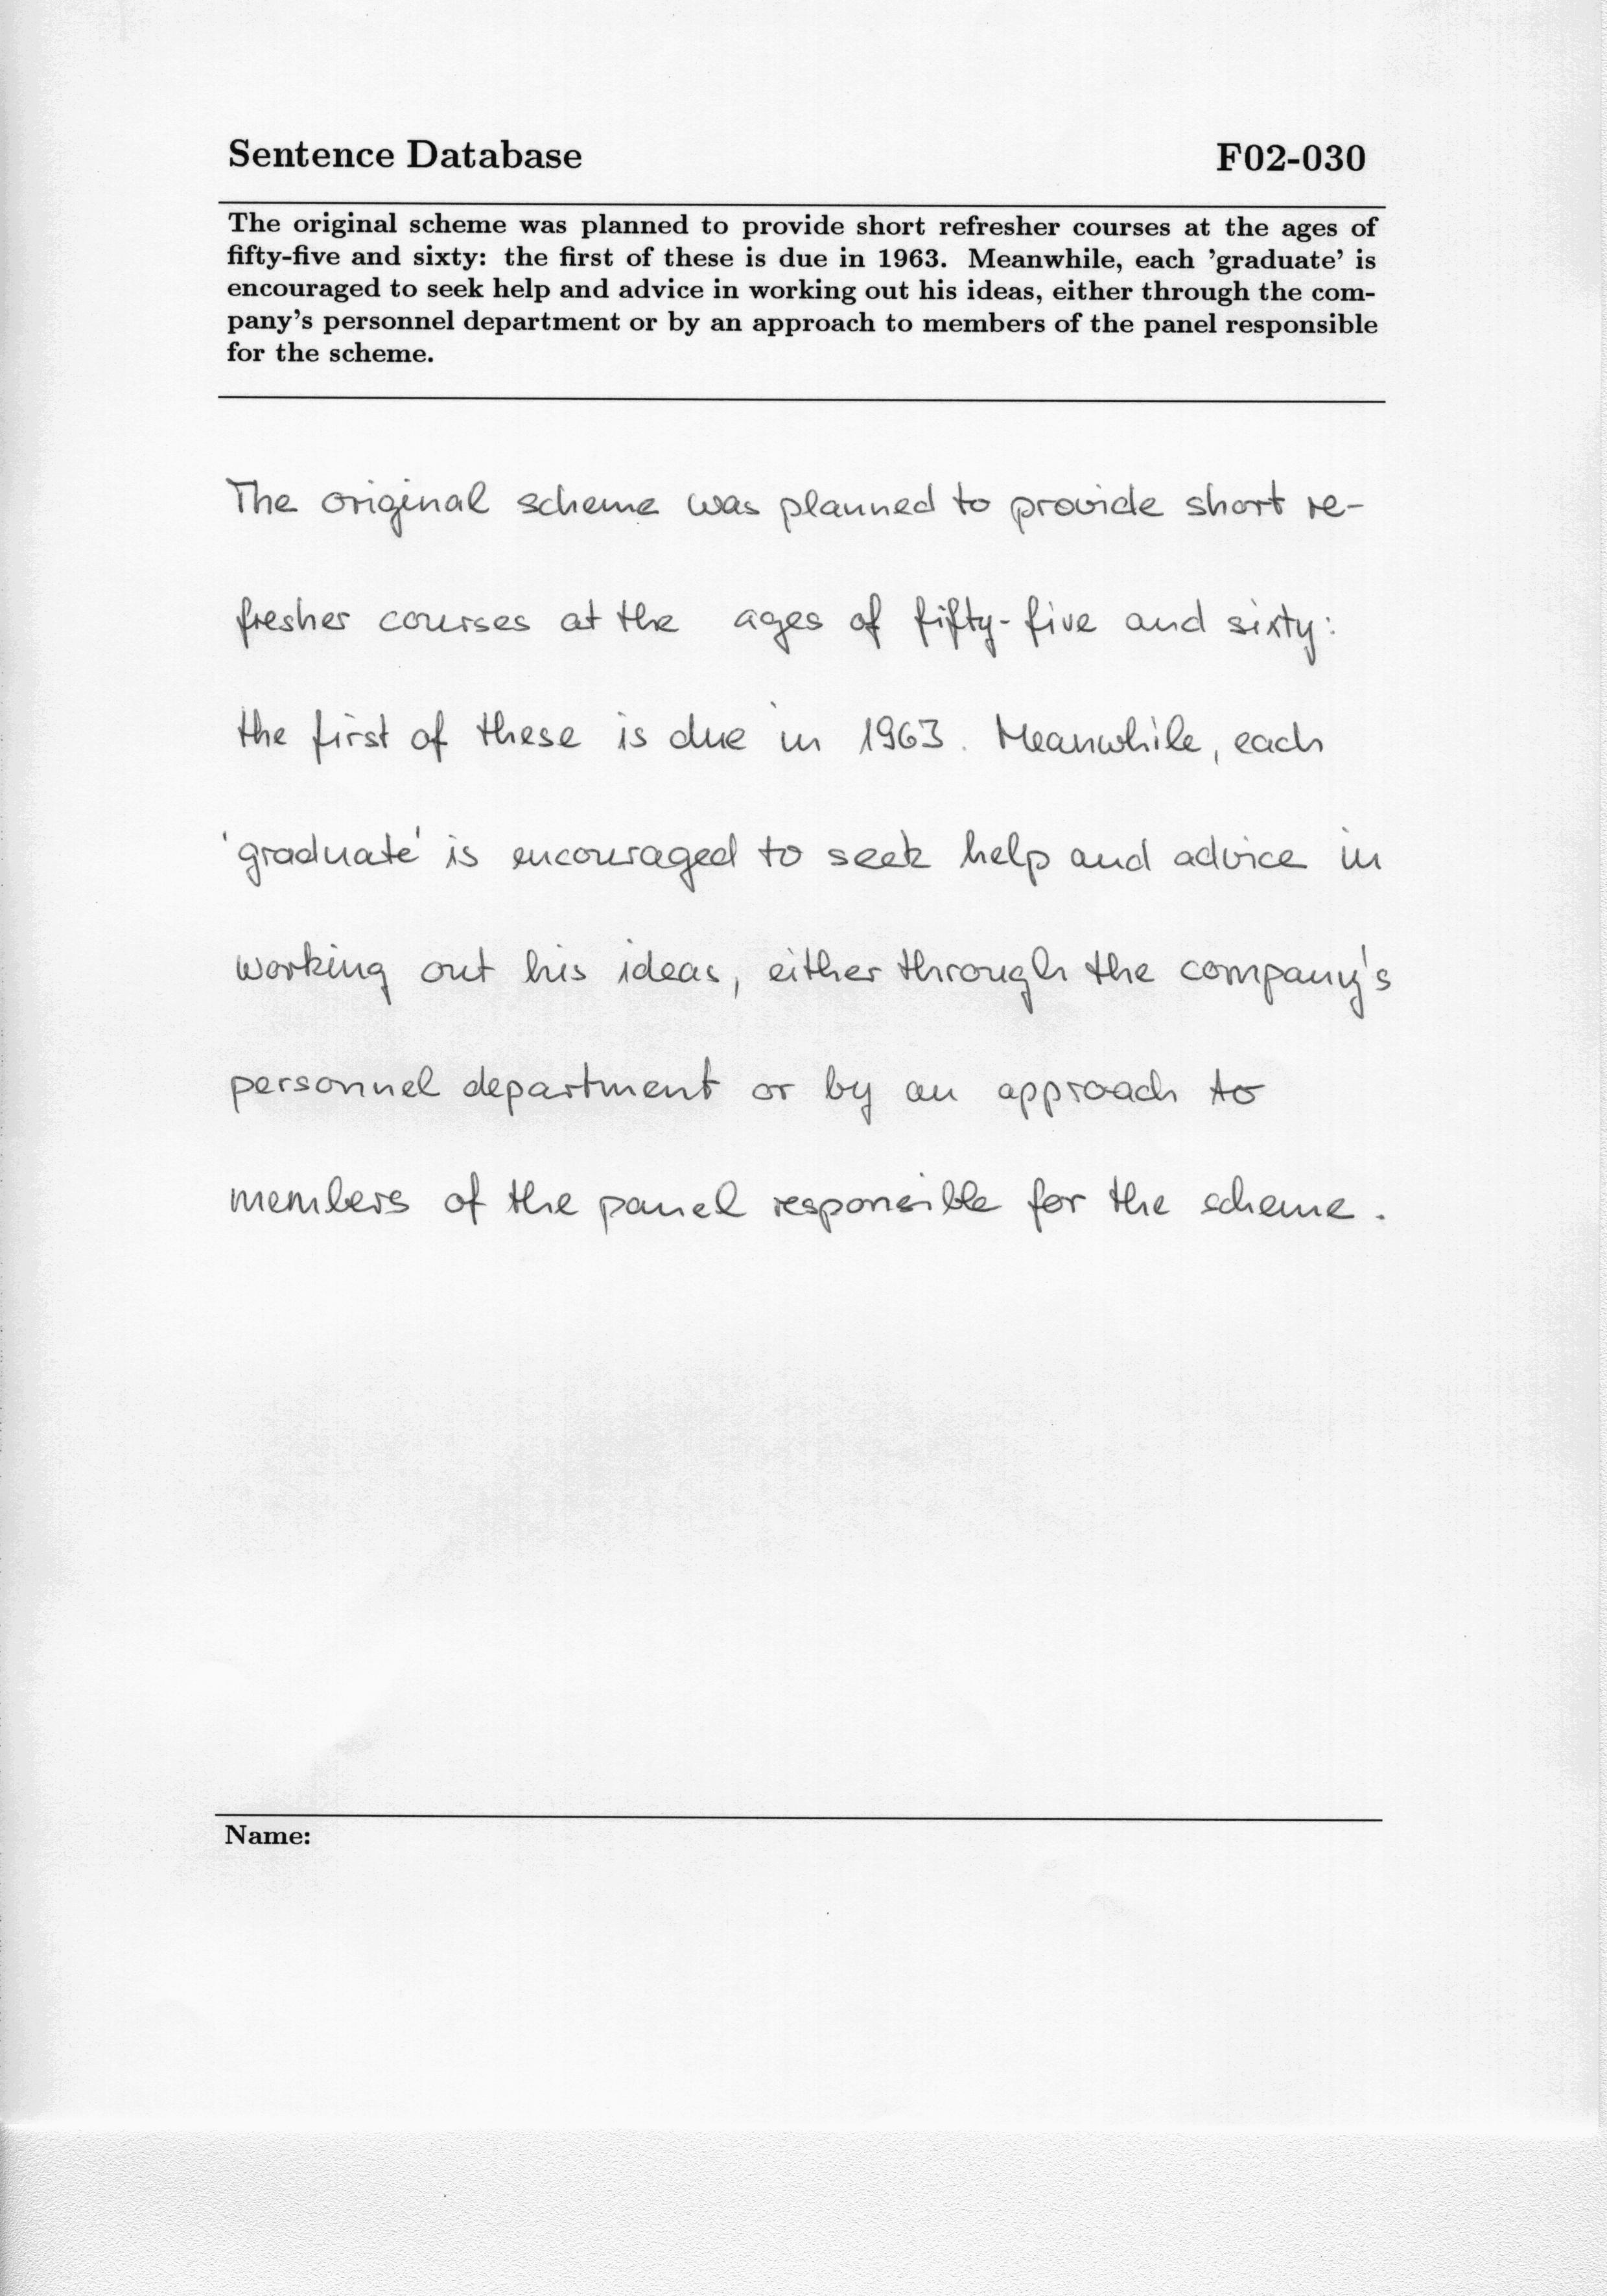 Sentence Database F02-030
The original scheme was planned to provide short refresher courses at the ages of
fifty-five and sixty: the first of these is due in 1963. Meanwhile, each 'graduate' is
encouraged to seek help and advice in working out his ideas, either through the com-
pany's personnel department or by an approach to members of the panel responsible
for the scheme.
The original scheme was planned to provide short re-
fresher courses at the ages of fifty-five and sixty:
the first of these is due in 1963. Meanwhile, each
'graduate' is encouraged to seek help and advice in
working out his ideas, either through the company's
personnel department or by an approach to
members of the panel responsible for the scheme.
Name: